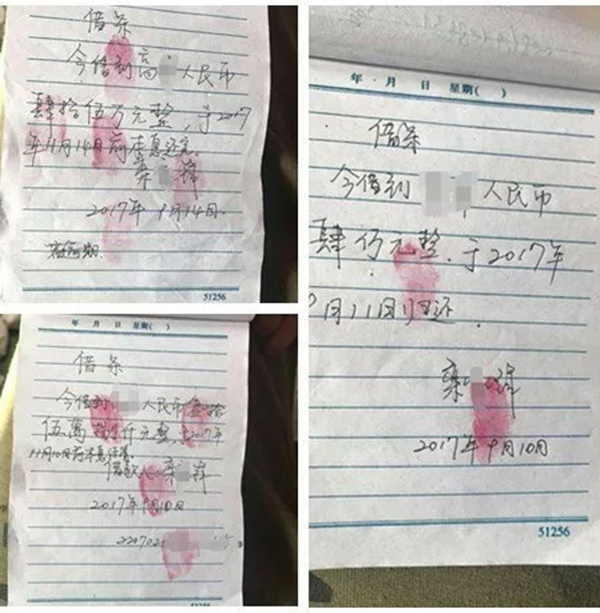 借条
今借到高 人民币
肆拾伍万元整，于2017
年11月14日前本息还完。
栾
2017年9月14日.
51256
年 月 日 星期( )
借条
今借到 人民币
伍萬 仟元整，于2017年
11月10日前本息
借款人
2017年9月10日
220702
51256
年 月 日 星期( )
借条
今借到 人民币
肆仟元整.于2017年
月11日归还.
栾
2017年9月10日
51256